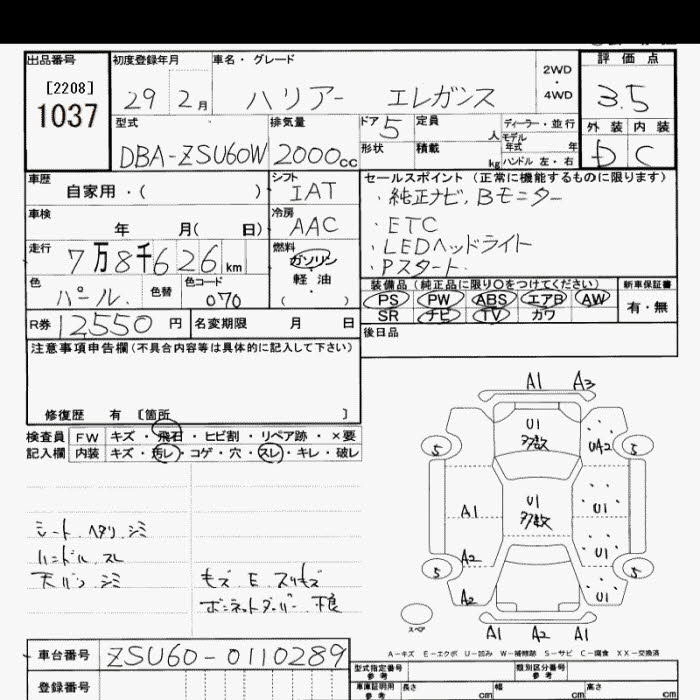 出品番号
[2208]
1037
初度登録年月
29 2月
車名・グレード
ハリアー エレガンス
2WD
・
4WD
評価点
3.5
型式
DBA-ZSU60W
排気量
2000cc
ドア
5
形状
定員
人
積載
kg
ディーラー・並行
モデル年式 年
ハンドル 左・右
外装 内装
D C
車歴
自家用・( )
シフト
IAT
車検
年 月( 日)
冷房
AAC
走行
7万8千626km
燃料
ガソリン
・
軽油
( )
色
パール.
色替
色コード
070
R券 12550円
名変期限 月 日
セールスポイント(正常に機能するものに限ります)
・純正ナビ, Bモニター
・ETC
・LEDヘッドライト
・Pスタート
装備品(純正品に限り○をつけてください)
PS PW ABS エアB AW
SR ナビ TV カワ
新車保証書
有・無
後日品
注意事項申告欄(不具合内容等は具体的に記入して下さい)
修復歴 有 〔箇所 〕
検査員 FW キズ・飛石・ヒビ割・リペア跡・×要
記入欄 内装 キズ・汚レ・コゲ・穴・スレ・キレ・破レ
シート ヘタリ シミ
ハンドル スレ
天バリ シミ
モズ E スリキズ
ボンネットダンパー 不良
A1 A3
U1
多数
UA2
5 5
A1
U1
多数
U1
U1
A2
5 5
A2
U1
スペア
A1 A2 A1
A-キズ E-エクボ U-凹み W-補修跡 S-サビ C-腐食 XX-交換済
車台番号 ZSU60-0110289
登録番号
型式指定番号
参考
類別区分番号
参考
車庫証明用
参考
長さ cm
幅 cm
高さ cm